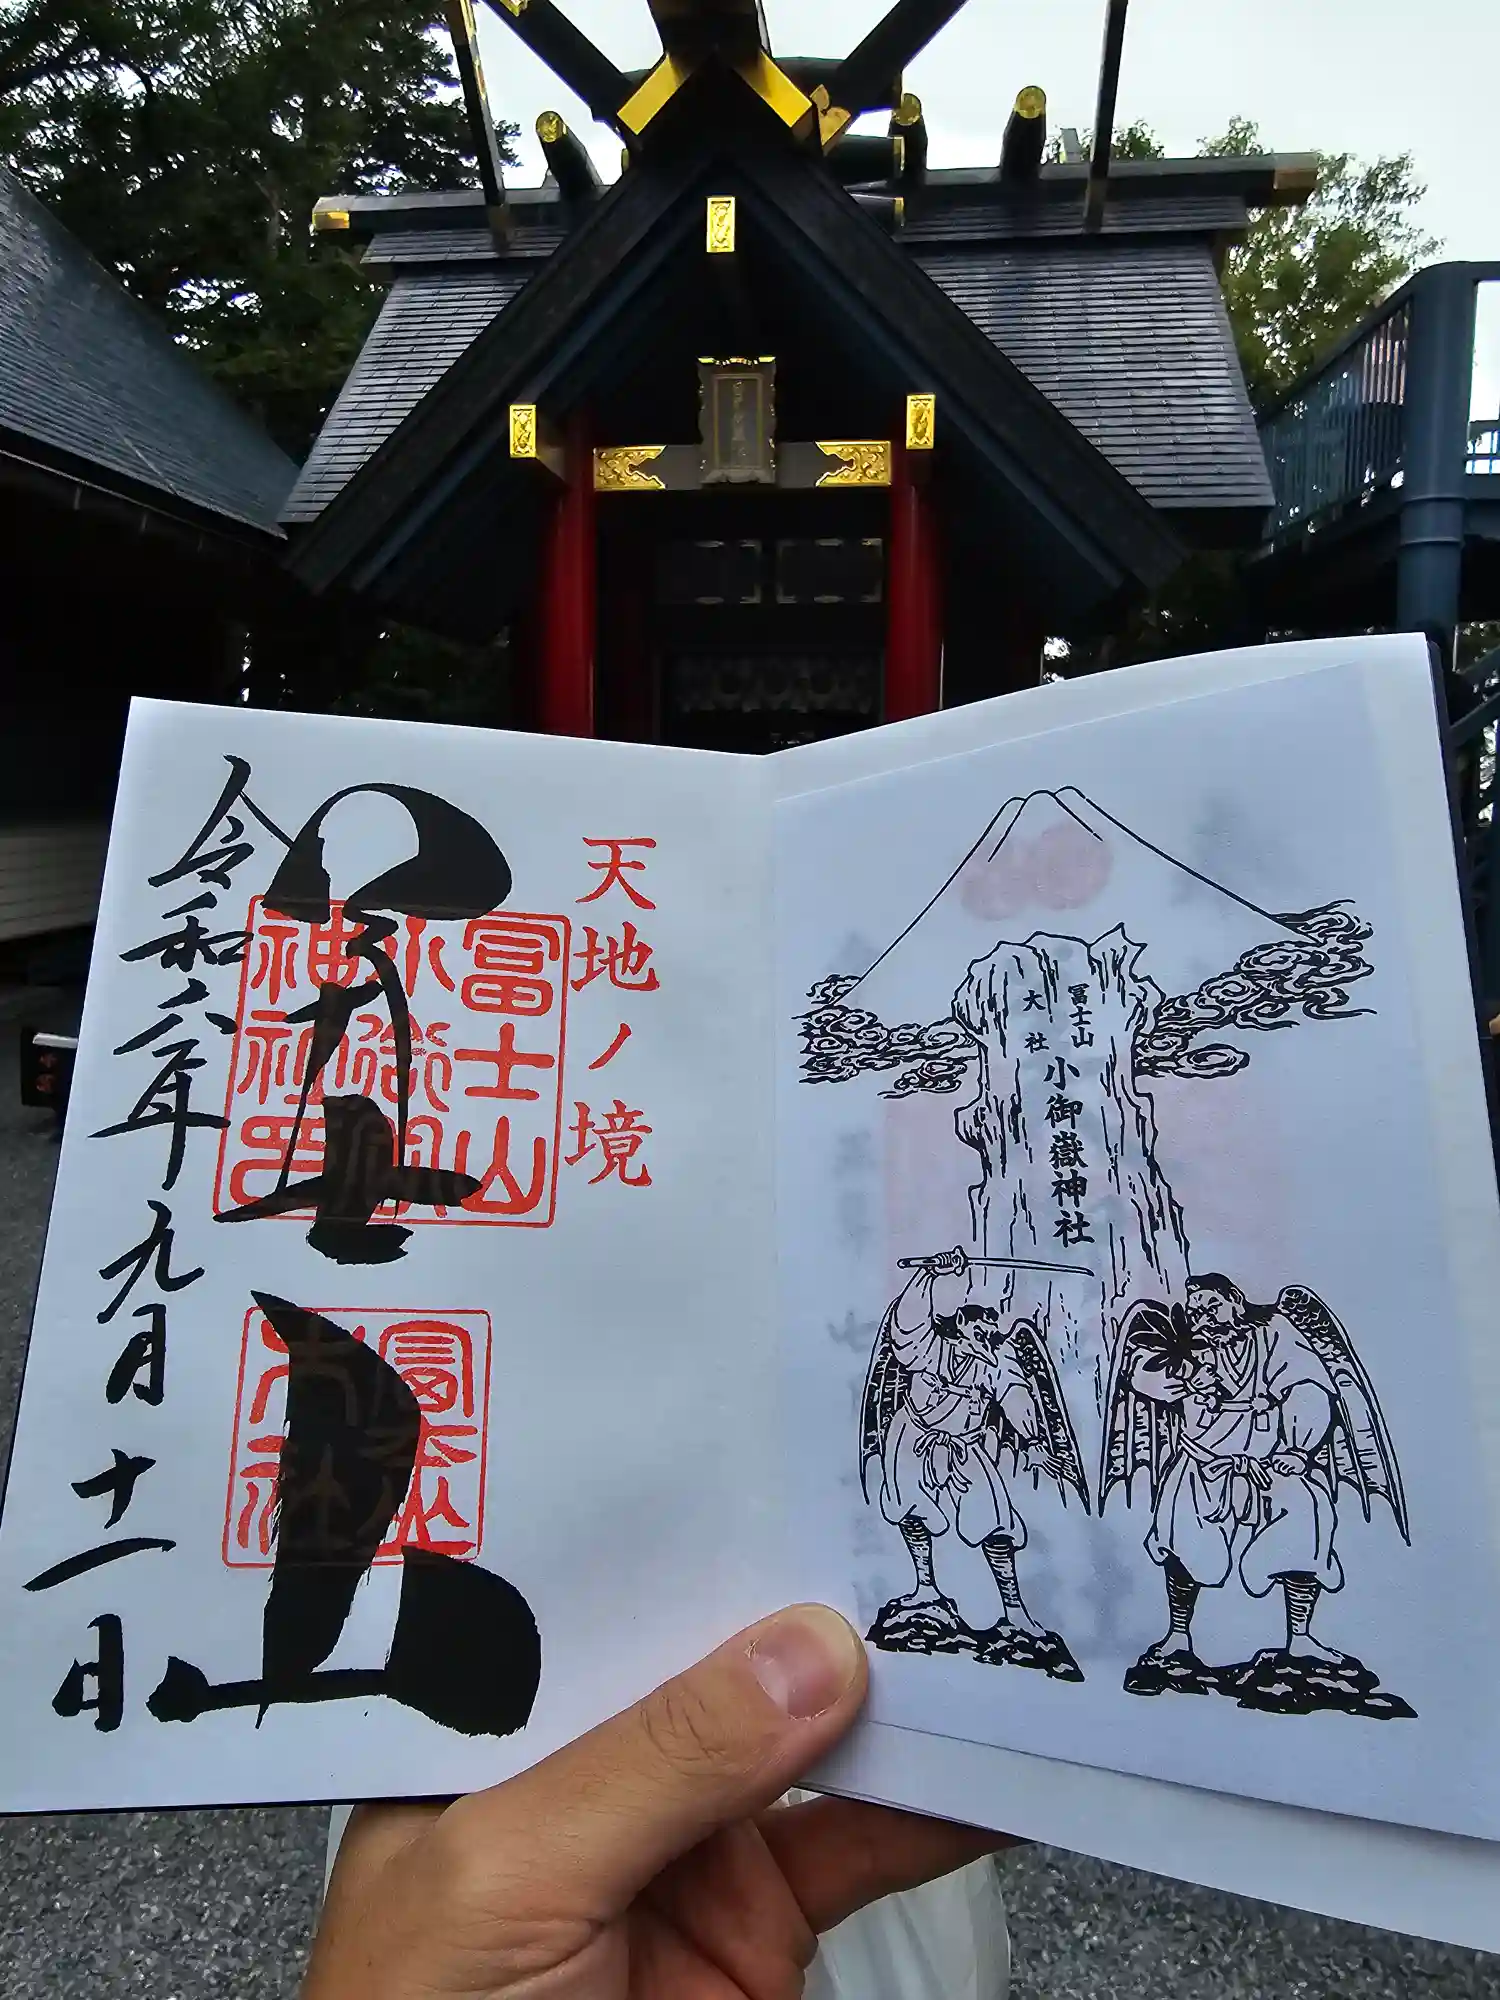 天地ノ境
冨士山
冨士山
小御嶽
神社印
冨士山
大社
令和六年九月十一日
冨士山
大社
小御嶽神社